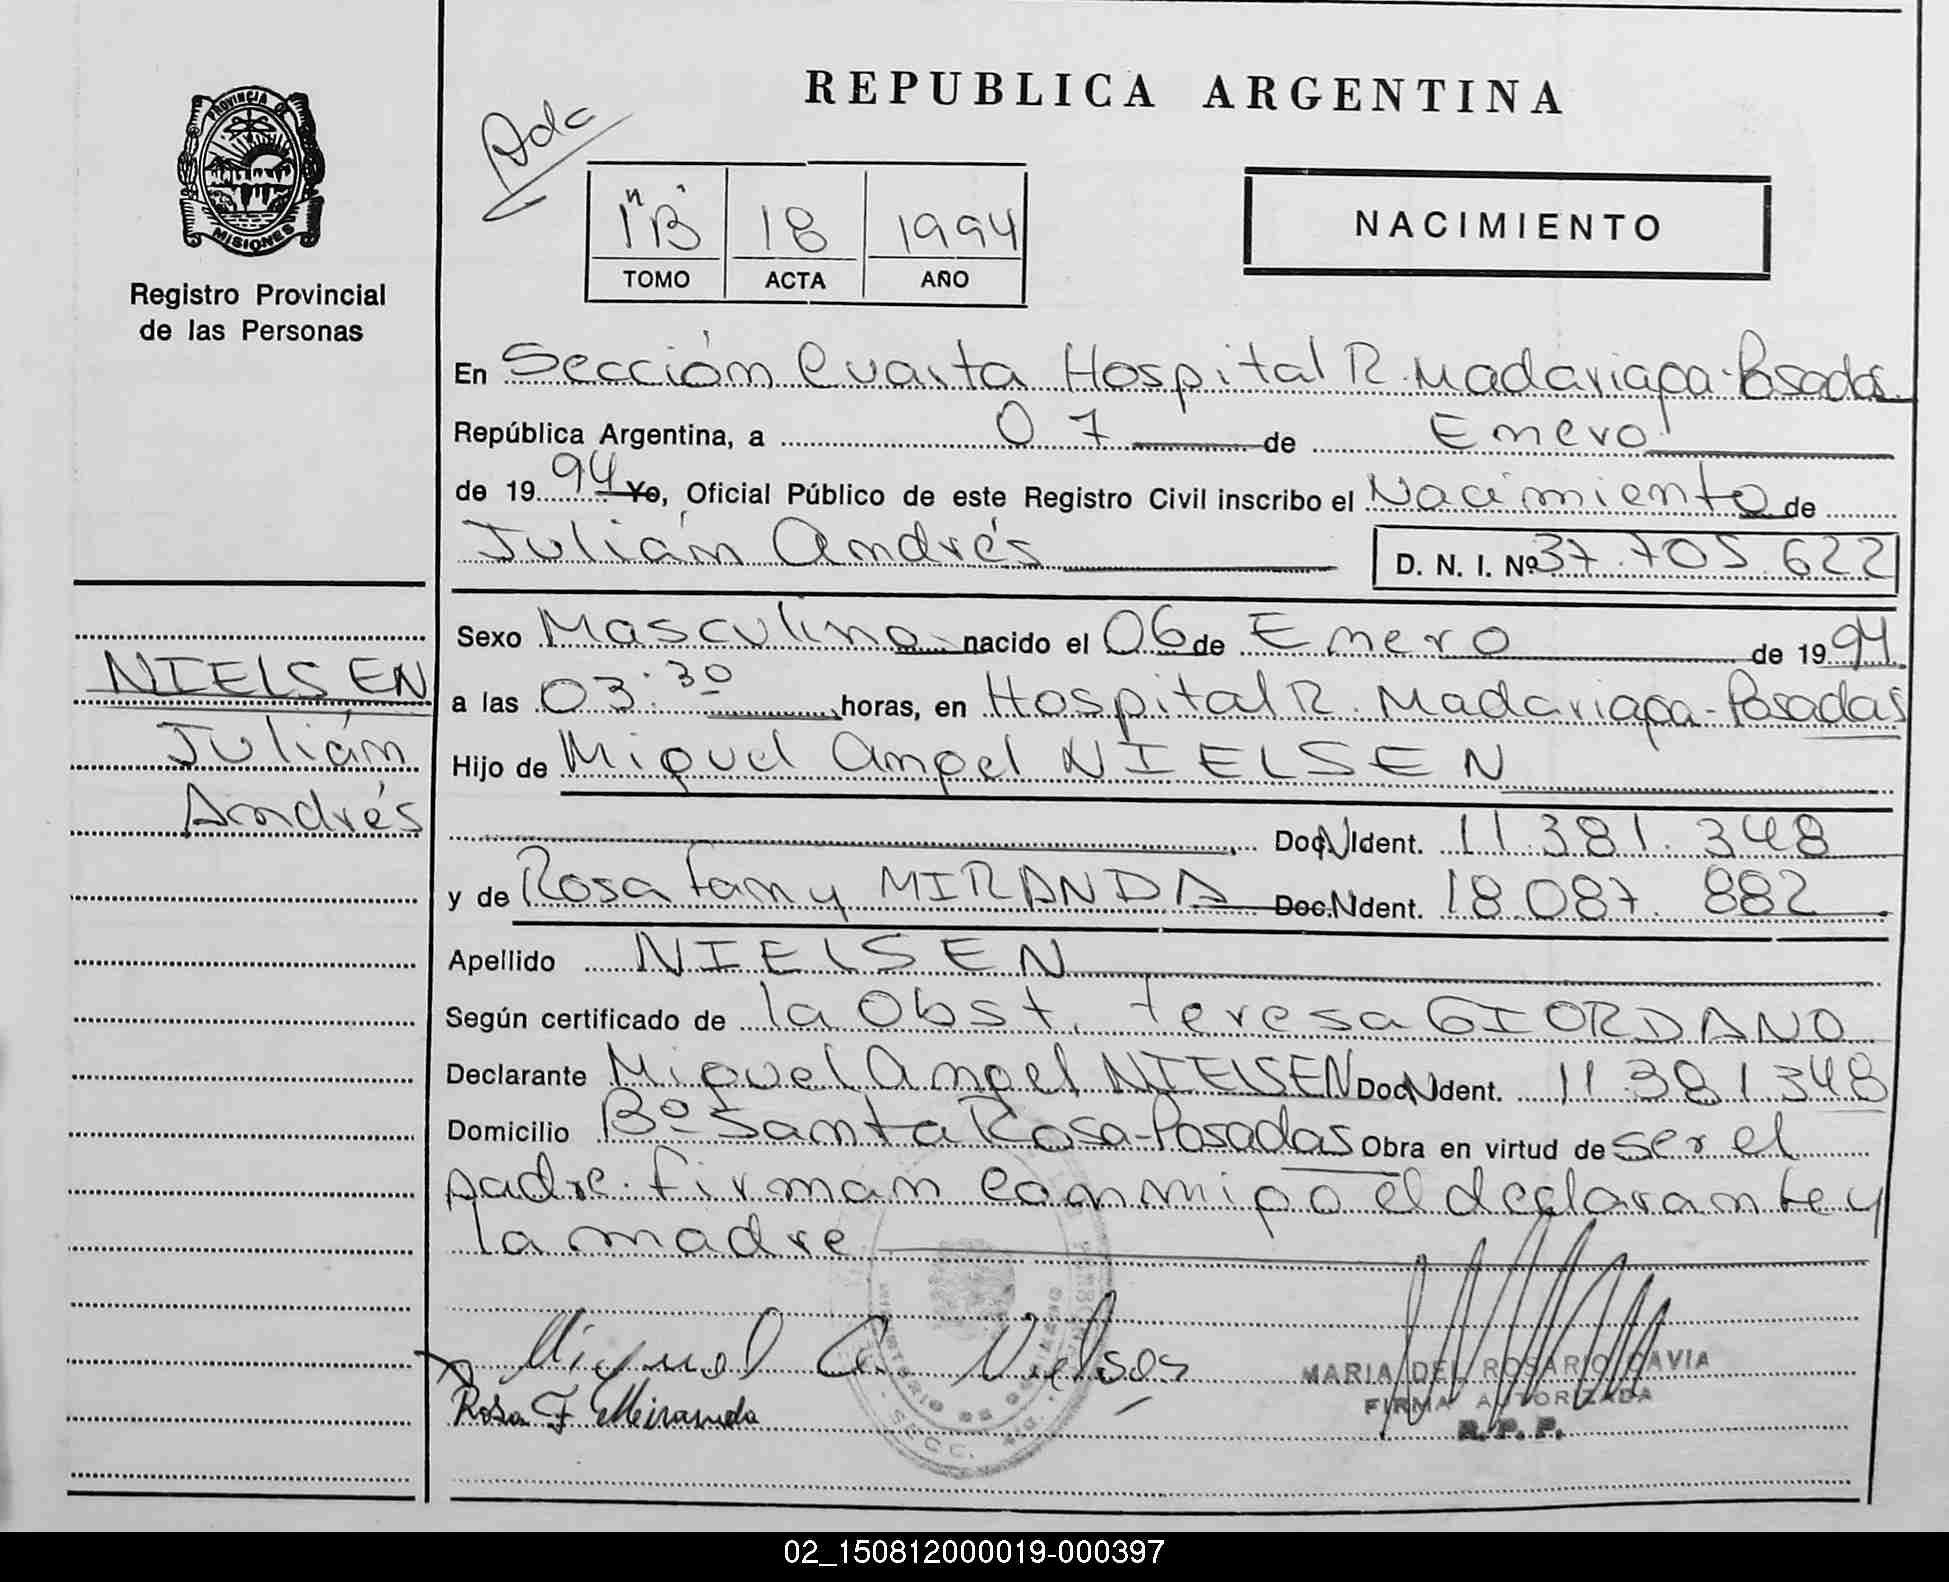 REPUBLICA ARGENTINA
PROVINCIA DE
MISIONES
Registro Provincial
de las Personas
Adc
1"B" 18 1994
TOMO ACTA AÑO
NACIMIENTO
En Sección Cuarta Hospital R. Madariaga-Posadas
República Argentina, a 07 de Enero
de 1994 Yo, Oficial Público de este Registro Civil inscribo el Nacimiento de
Julián Andrés D. N. I. Nº 37.705.622
Sexo Masculino nacido el 06 de Enero de 1994
a las 03:30 horas, en Hospital R. Madariaga-Posadas
Hijo de Miguel Angel NIELSEN
Doc N Ident. 11.381.348
y de Rosa Fanny MIRANDA Doc. N Ident. 18.087.882
Apellido NIELSEN
Según certificado de la Obst. Teresa GIORDANO
Declarante Miguel Angel NIELSEN Doc N Ident. 11.381.348
Domicilio Bº Santa Rosa-Posadas Obra en virtud de ser el
padre. Firman conmigo el declarante y
la madre
NIELSEN
Julián
Andrés
Miguel A. Nielsen
Rosa F Miranda
MARIA DEL ROSARIO CAVIA
FIRMA AUTORIZADA
R. P. P.
SECC. 4ta.
02_150812000019-000397